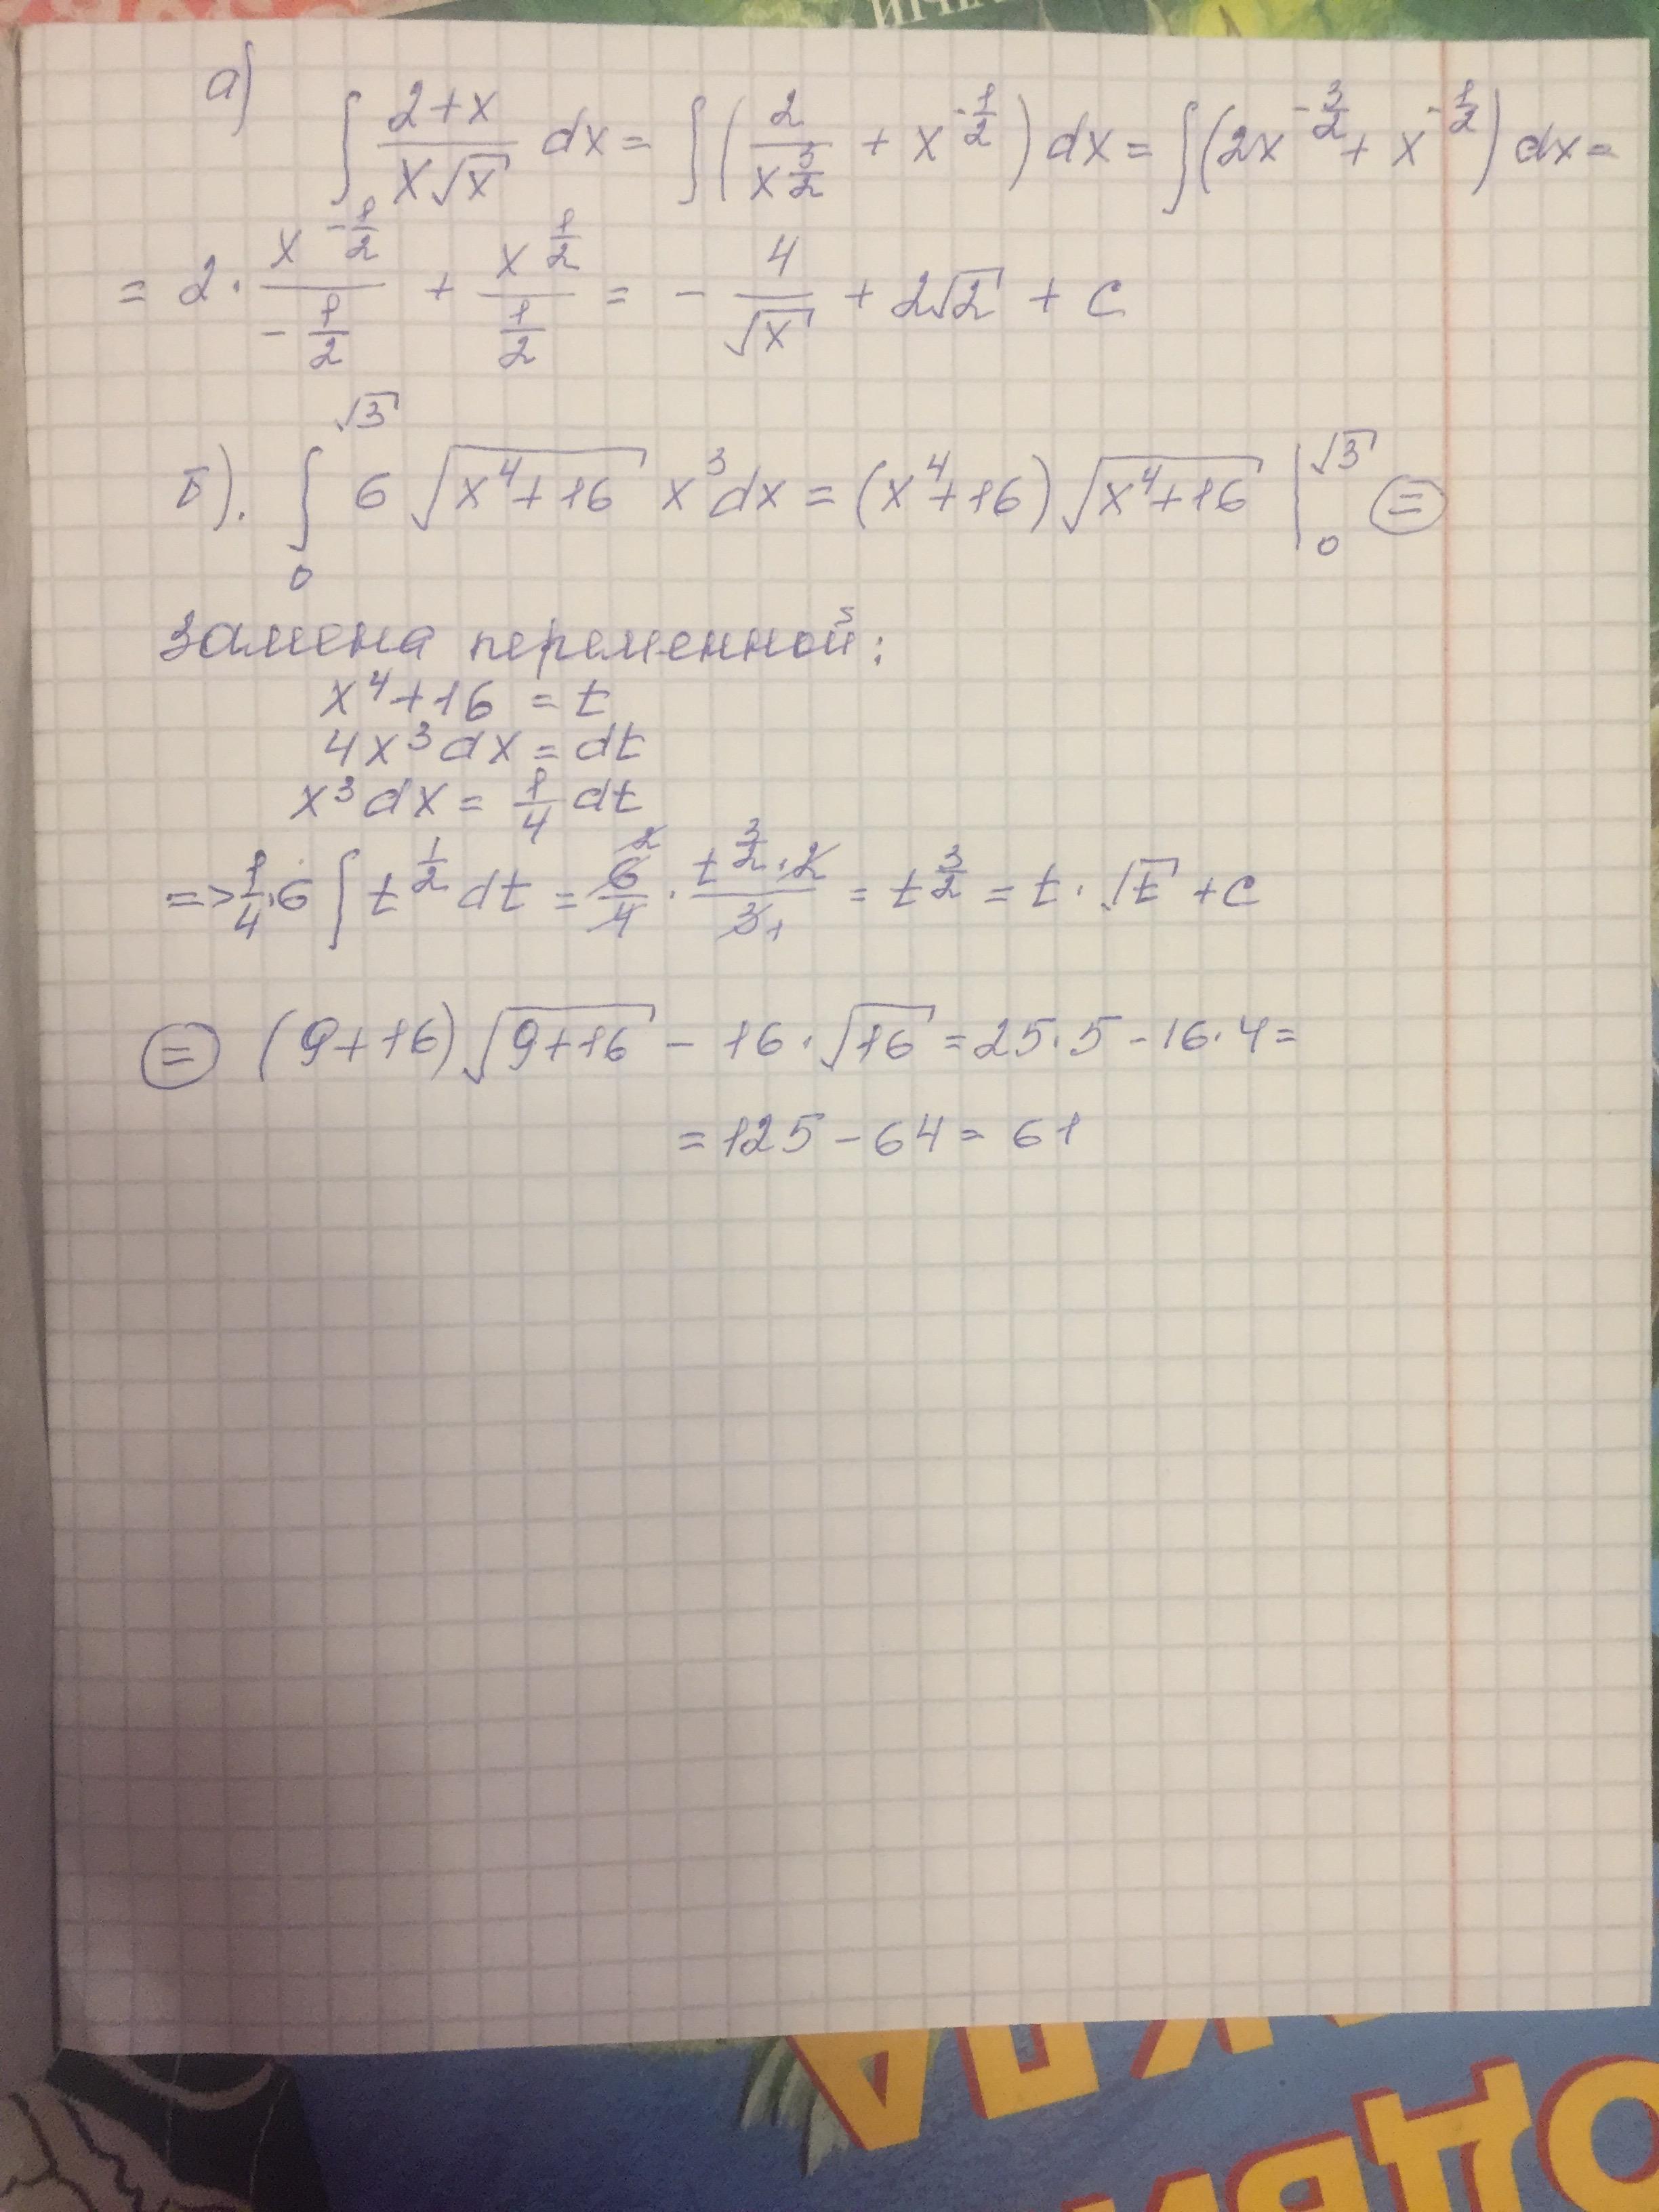 а)
∫ (2+x)/(x√x) dx = ∫(2/x^(3/2) + x^(-1/2)) dx = ∫(2x^(-3/2) + x^(-1/2)) dx =
= 2 · x^(-1/2)/(-1/2) + x^(1/2)/(1/2) = - 4/√x + 2√2 + c
б). ∫_0^√3 6 √(x^4+16) x^3 dx = (x^4+16) √(x^4+16) |_0^√3 ⊜
замена переменной:
x^4+16 = t
4x^3 dx = dt
x^3 dx = 1/4 dt
=> 1/4 · 6 ∫ t^(1/2) dt = 6/4 · (t^(3/2) · 2)/3 = t^(3/2) = t · √t + c
⊜ (9+16) √(9+16) - 16 · √16 = 25·5 - 16·4 =
= 125 - 64 = 61